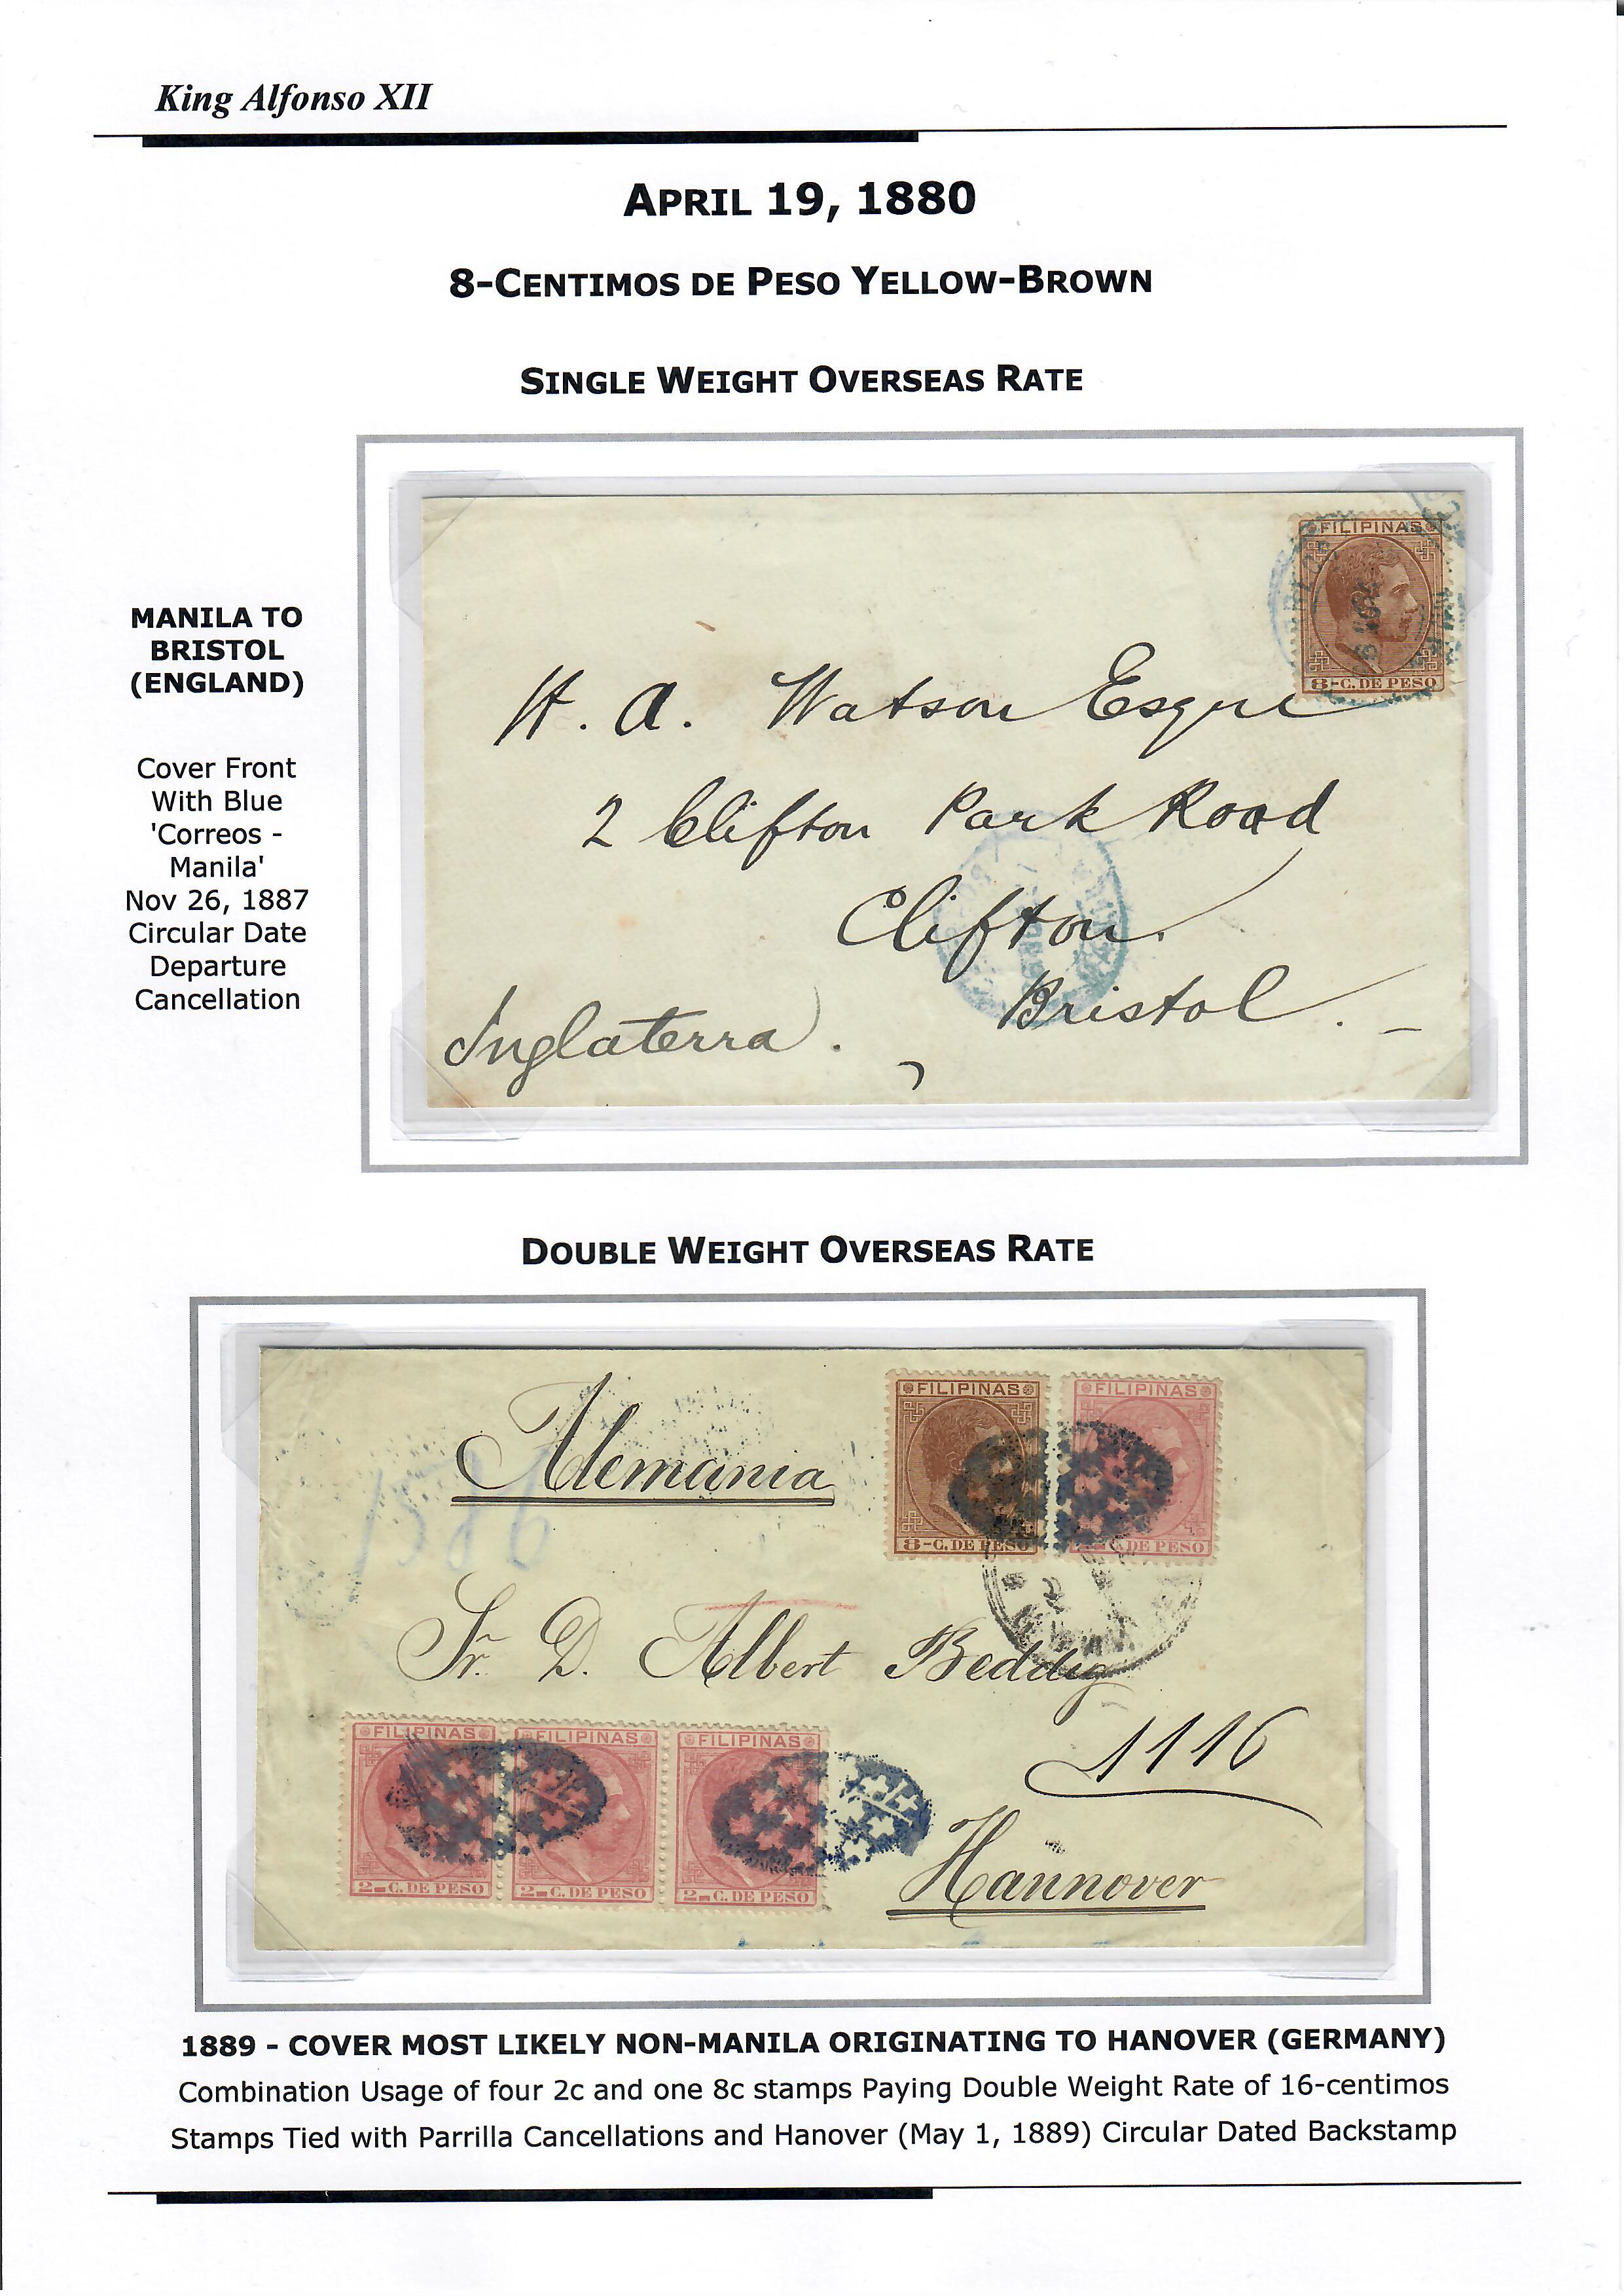 King Alfonso XII
APRIL 19, 1880
8-CENTIMOS DE PESO YELLOW-BROWN
SINGLE WEIGHT OVERSEAS RATE
MANILA TO
BRISTOL
(ENGLAND)
Cover Front
With Blue
'Correos -
Manila'
Nov 26, 1887
Circular Date
Departure
Cancellation
FILIPINAS
8-C. DE PESO
H. A. Watson Esqre
2 Clifton Park Road
Clifton.
Bristol.
Inglaterra.
DOUBLE WEIGHT OVERSEAS RATE
Alemania
FILIPINAS
8-C. DE PESO
FILIPINAS
C. DE PESO
1586
Sr. D. Albert Beddig
FILIPINAS
2-C. DE PESO
FILIPINAS
2-C. DE PESO
FILIPINAS
2-C. DE PESO
1116
Hannover
1889 - COVER MOST LIKELY NON-MANILA ORIGINATING TO HANOVER (GERMANY)
Combination Usage of four 2c and one 8c stamps Paying Double Weight Rate of 16-centimos
Stamps Tied with Parrilla Cancellations and Hanover (May 1, 1889) Circular Dated Backstamp